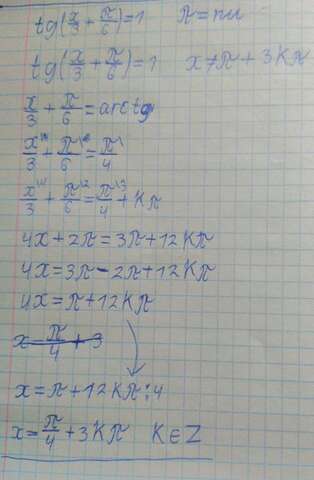 tg(x/3 + π/6) = 1 π = пи
tg(x/3 + π/6) = 1 x ≠ π + 3Kπ
x/3 + π/6 = arctg
x/3 + π/6 = π/4
x/3 + π/6 = π/4 + Kπ
4x + 2π = 3π + 12Kπ
4x = 3π - 2π + 12Kπ
4x = π + 12Kπ
x = π/4 + 3
x = π + 12Kπ : 4
x = π/4 + 3Kπ K ∈ Z